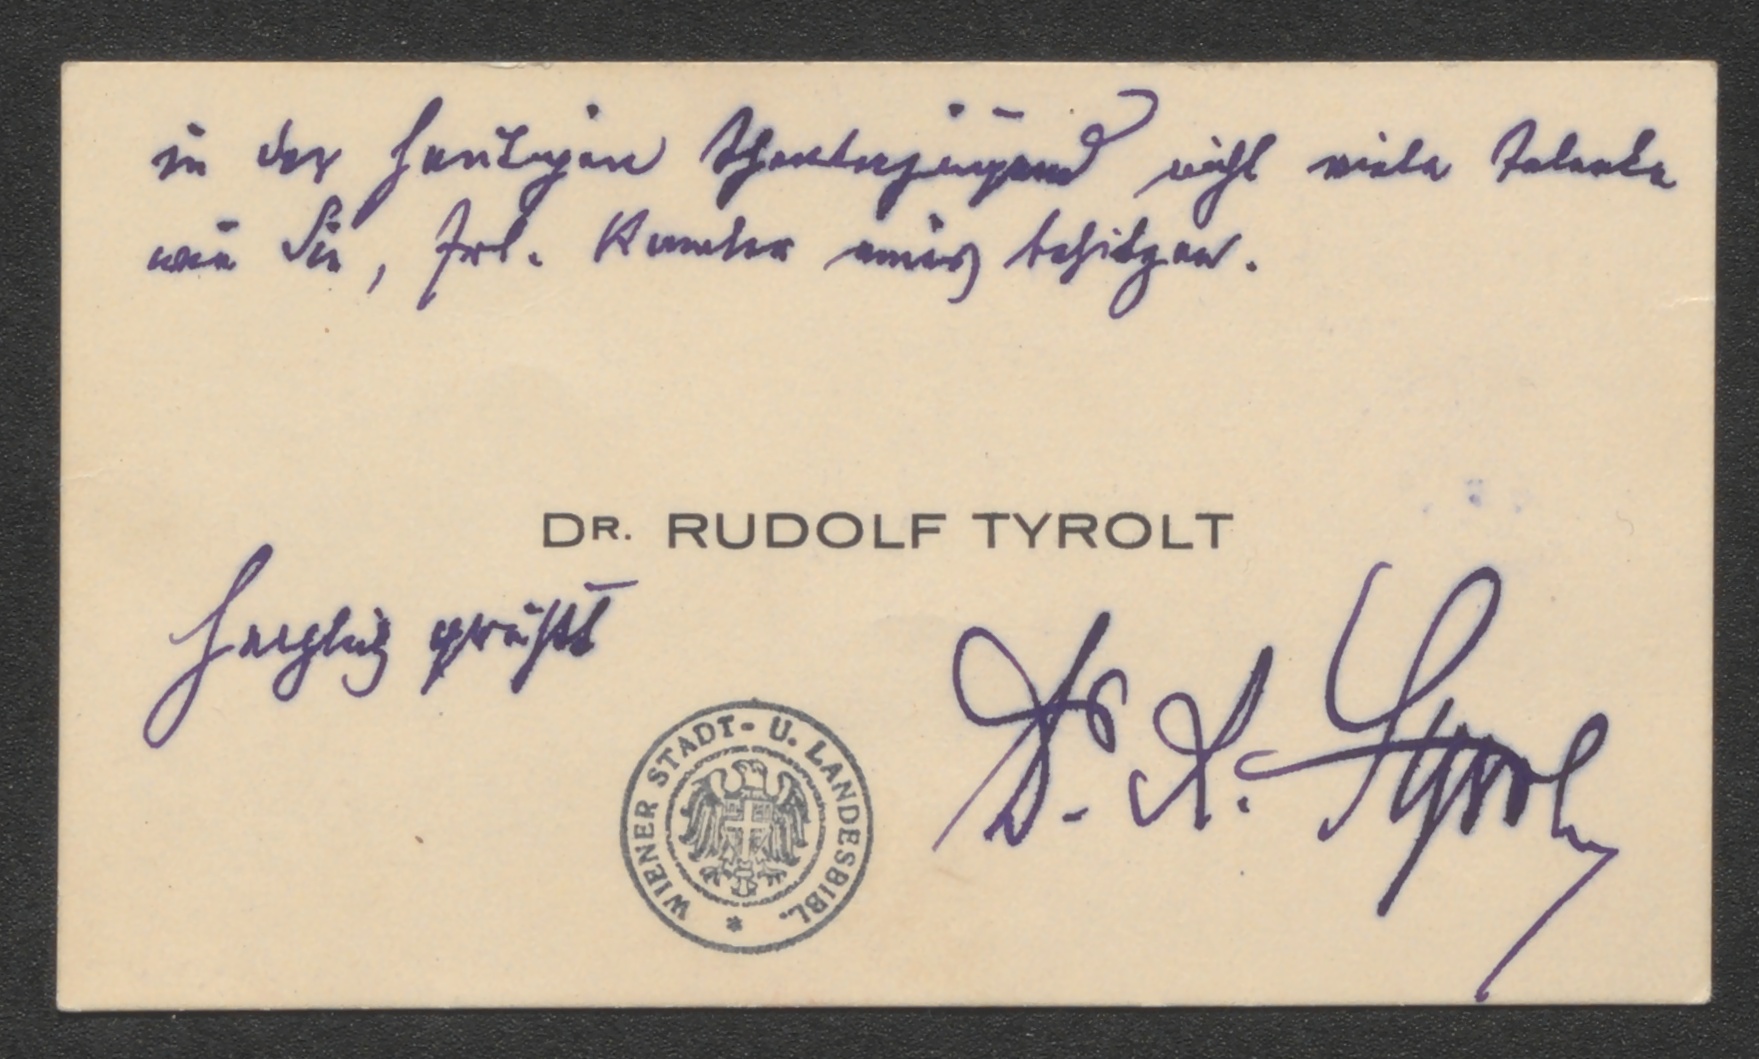 in der heutigen Theaterjugend nicht viele Talente
wie Sie, Frl. Kramer eines besitzen.
DR. RUDOLF TYROLT
Herzlich grüßt
Dr. R. Tyrolt
WIENER STADT- U. LANDESBIBL. *